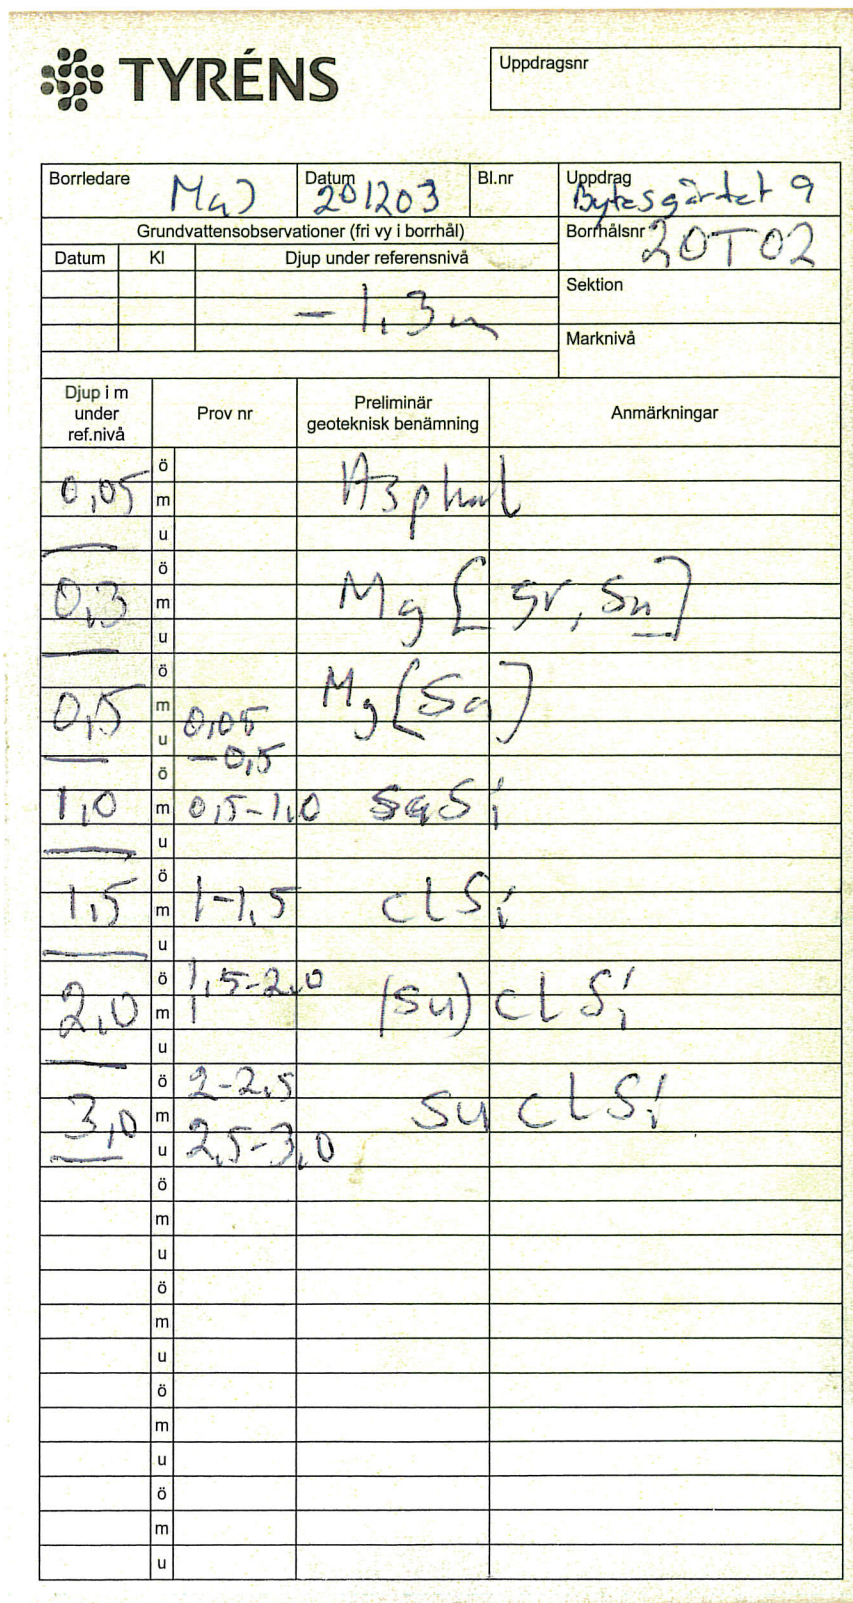 TYRÉNS
Uppdragsnr
Borrledare MaJ Datum 201203 Bl.nr Uppdrag Bytesgärdet 9
Grundvattensobservationer (fri vy i borrhål) Borrhålsnr 20T02
Datum Kl Djup under referensnivå
Sektion
-1,3m
Marknivå
Djup i m under ref.nivå Prov nr Preliminär geoteknisk benämning Anmärkningar
ö
0,05 m Asphal
u
ö
0,3 m Mg [gr, Sa]
u
ö
0,5 m 0,05 Mg [Sa]
u -0,5
ö
1,0 m 0,5-1,0 SaSi
u
ö
1,5 m 1-1,5 clSi
u
ö 1,5-2,0
2,0 m (Su) cl Si
u
ö 2-2,5
3,0 m Su cl Si
u 2,5-3,0
ö
m
u
ö
m
u
ö
m
u
ö
m
u